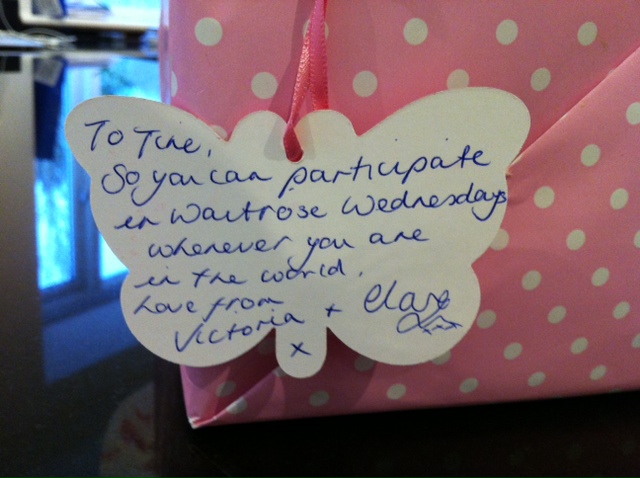 To Tine,
So you can participate
in Waitrose Wednesdays
whenever you are
in the world.
Love from
Victoria + Clare
x